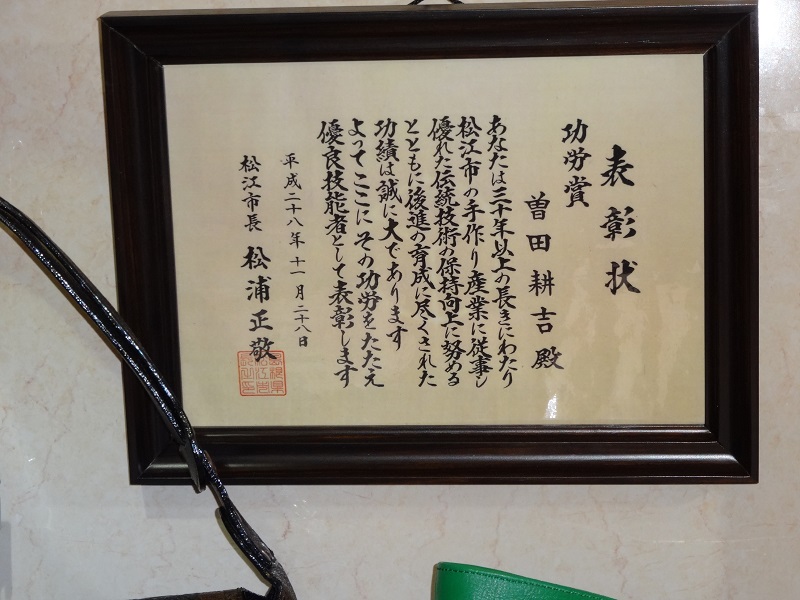 表彰状
功労賞
曽田耕吉殿
あなたは三十年以上の長きにわたり
松江市の手作り産業に従事し
優れた伝統技術の保持向上に努める
とともに後進の育成に尽くされた
功績は誠に大であります
よってここにその功労をたたえ
優良技能者として表彰します
平成二十八年十一月二十八日
松江市長 松浦正敬